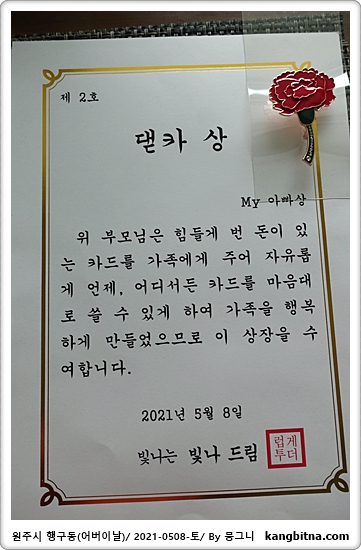 제 2호
댇카 상
My 아빠상
위 부모님은 힘들게 번 돈이 있
는 카드를 가족에게 주어 자유롭
게 언제, 어디서든 카드를 마음대
로 쓸 수 있게 하여 가족을 행복
하게 만들었으므로 이 상장을 수
여합니다.
2021년 5월 8일
빛나는 빛나 드림
럽게
투더
원주시 행구동(어버이날)/ 2021-0508-토/ By 몽그니 kangbitna.com